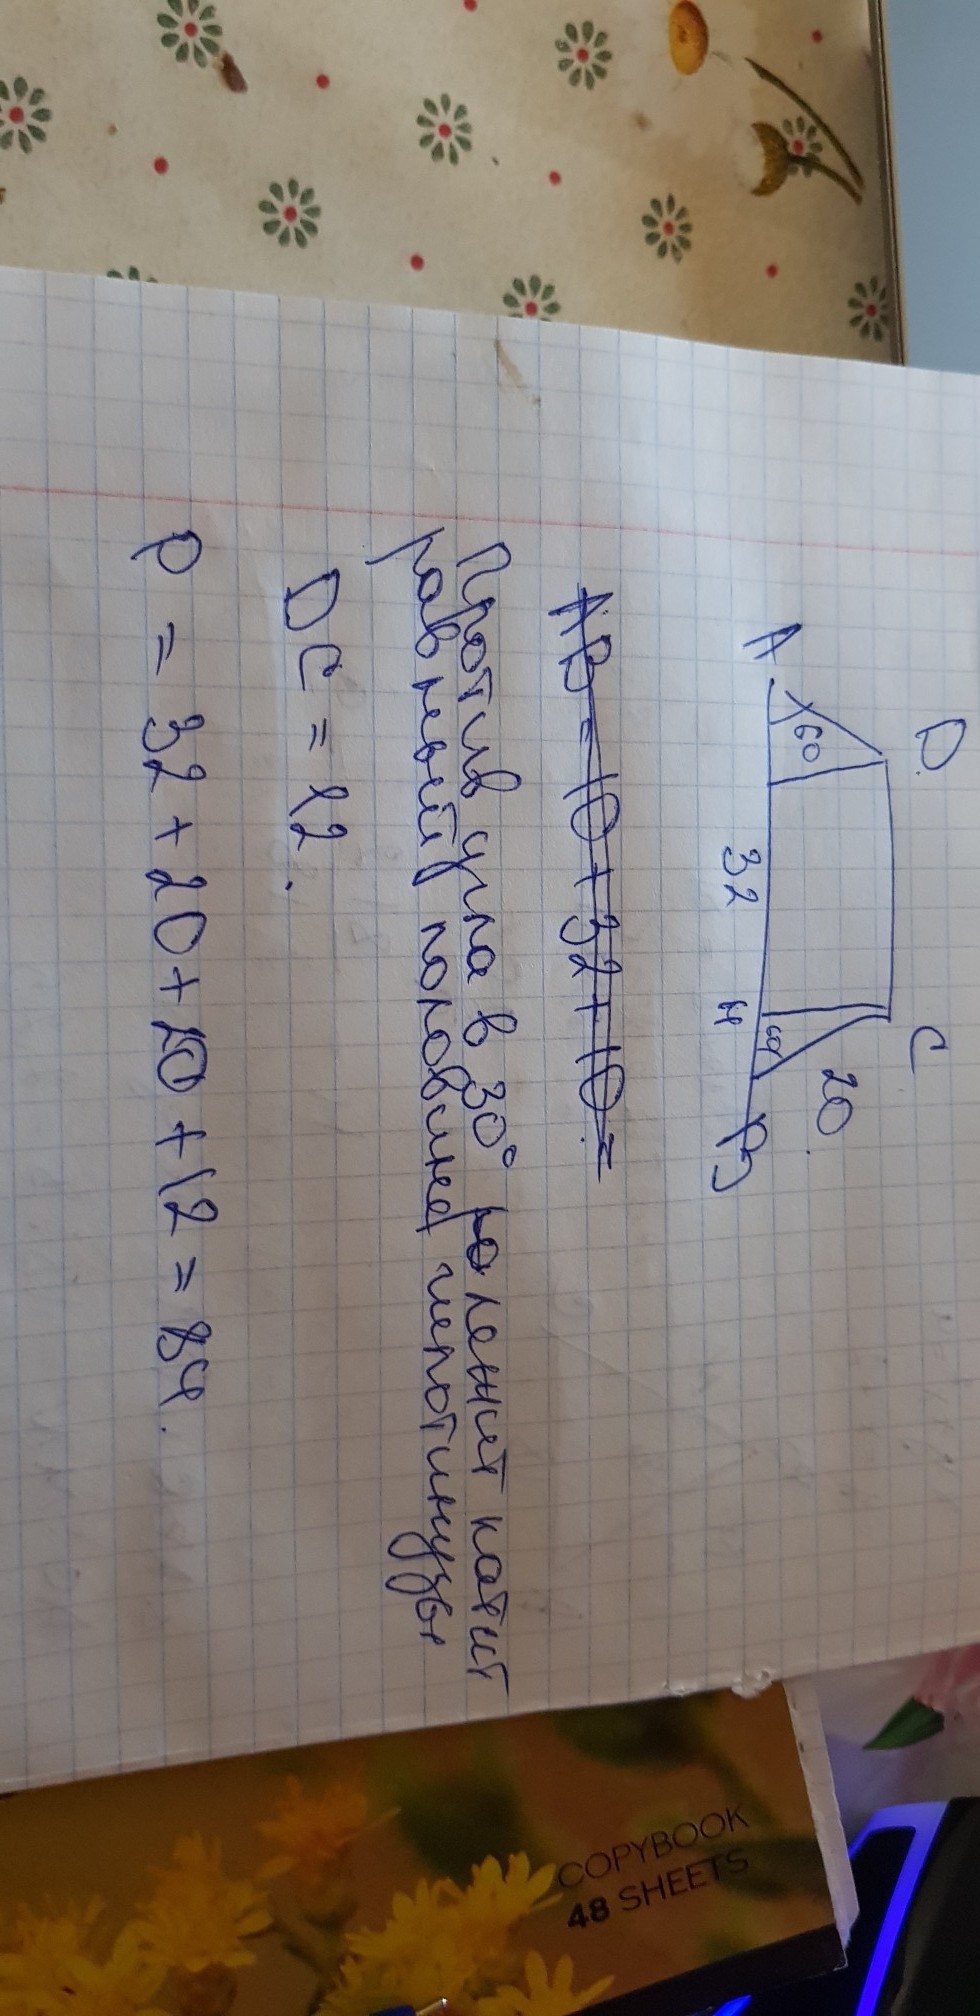 D
C
A
60
60
20
32
H
B
AB = 10 + 32 + 10 =
Против угла в 30° лежит катит
равный половине гипотинузы
DC = 12.
P = 32 + 20 + 20 + 12 = 84.
COPYBOOK
48 SHEETS